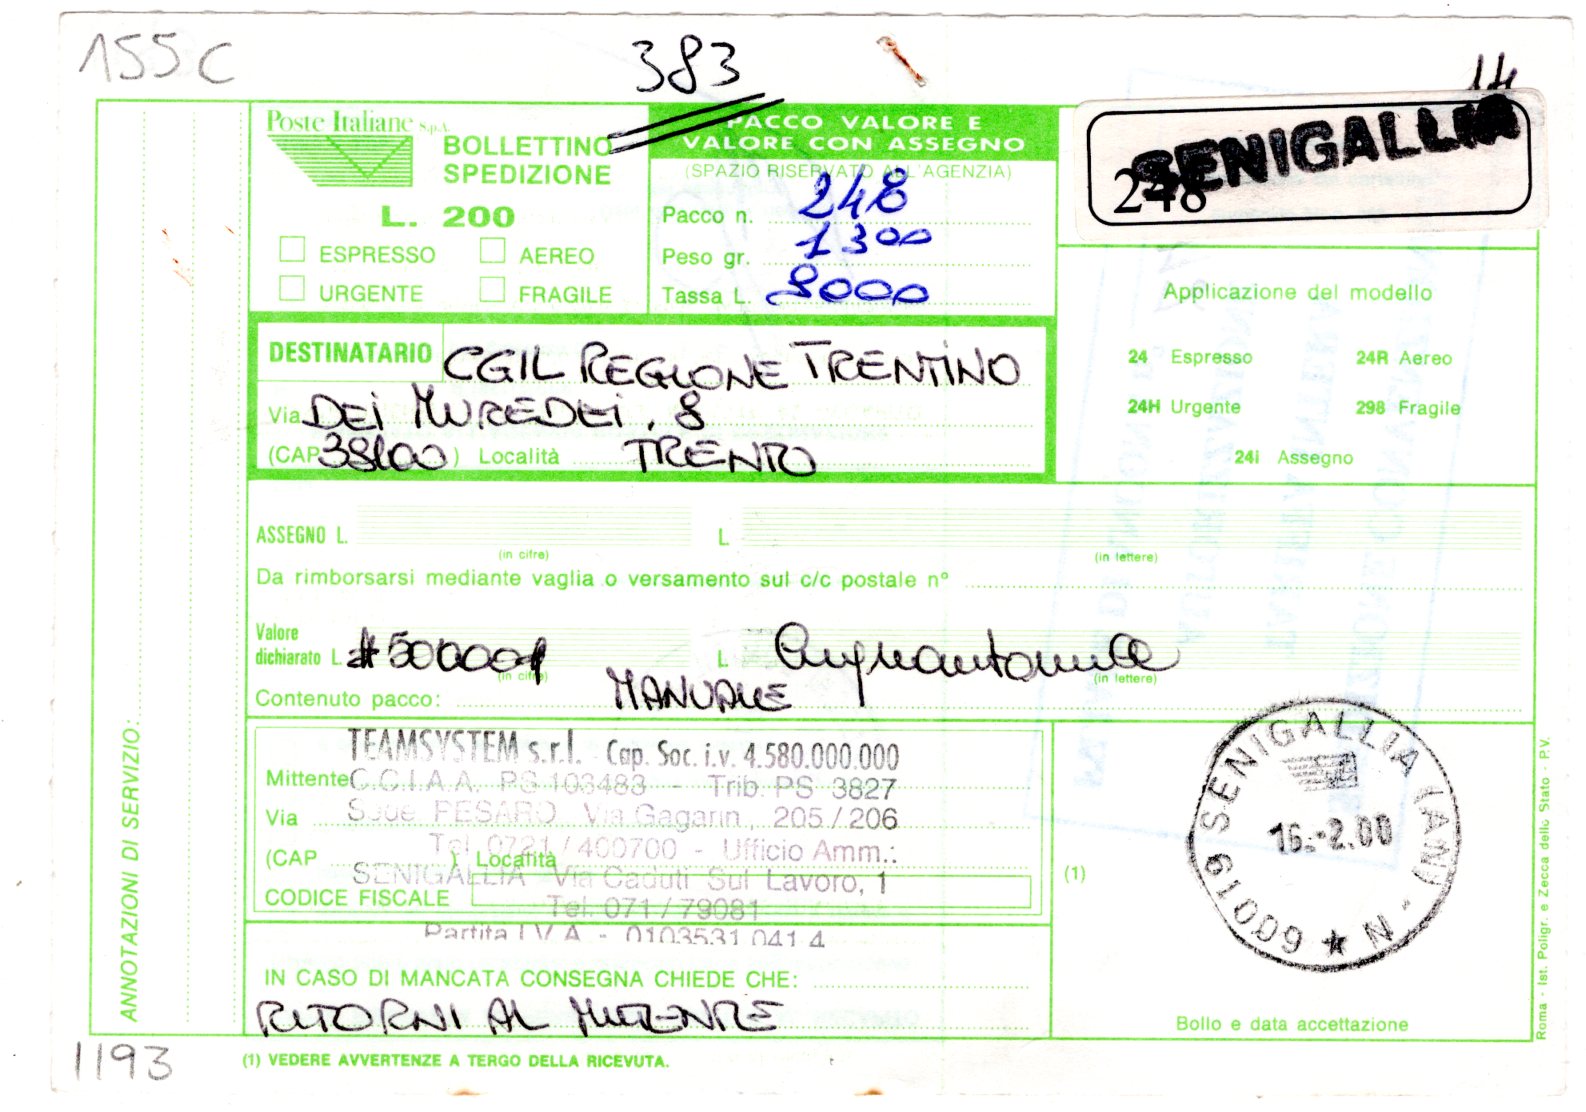 155C
383
14
Poste Italiane S.p.A.
BOLLETTINO
SPEDIZIONE
L. 200
ESPRESSO AEREO
URGENTE FRAGILE
PACCO VALORE E
VALORE CON ASSEGNO
(SPAZIO RISERVATO ALL'AGENZIA)
Pacco n. 248
Peso gr. 1300
Tassa L. 8000
SENIGALLIA
248
Applicazione del modello
24 Espresso 24R Aereo
24H Urgente 298 Fragile
24I Assegno
DESTINATARIO CGIL REGIONE TRENTINO
Via DEI MUREDEI, 8
(CAP 38100) Località TRENTO
ASSEGNO L. L.
(in cifre) (in lettere)
Da rimborsarsi mediante vaglia o versamento sul c/c postale n°
Valore
dichiarato L. #50000# L. Cinquantamila
(in cifre) (in lettere)
Contenuto pacco: MANUALE
TEAMSYSTEM s.r.l. Cap. Soc. i.v. 4.580.000.000
Mittente C.C.I.A.A. PS 103483 - Trib. PS 3827
Via Sede PESARO Via Gagarin, 205/206
Tel. 0721/400700 - Ufficio Amm.:
(CAP ) Località
SENIGALLIA Via Caduti Sul Lavoro, 1
CODICE FISCALE
Tel. 071/79081
Partita I.V.A. - 0103531 041 4
IN CASO DI MANCATA CONSEGNA CHIEDE CHE:
RITORNI AL MITTENTE
(1)
60019 SENIGALLIA (AN) - N ★
16.-2.00
Bollo e data accettazione
ANNOTAZIONI DI SERVIZIO:
Roma - Ist. Poligr. e Zecca dello Stato - P.V.
1193
(1) VEDERE AVVERTENZE A TERGO DELLA RICEVUTA.